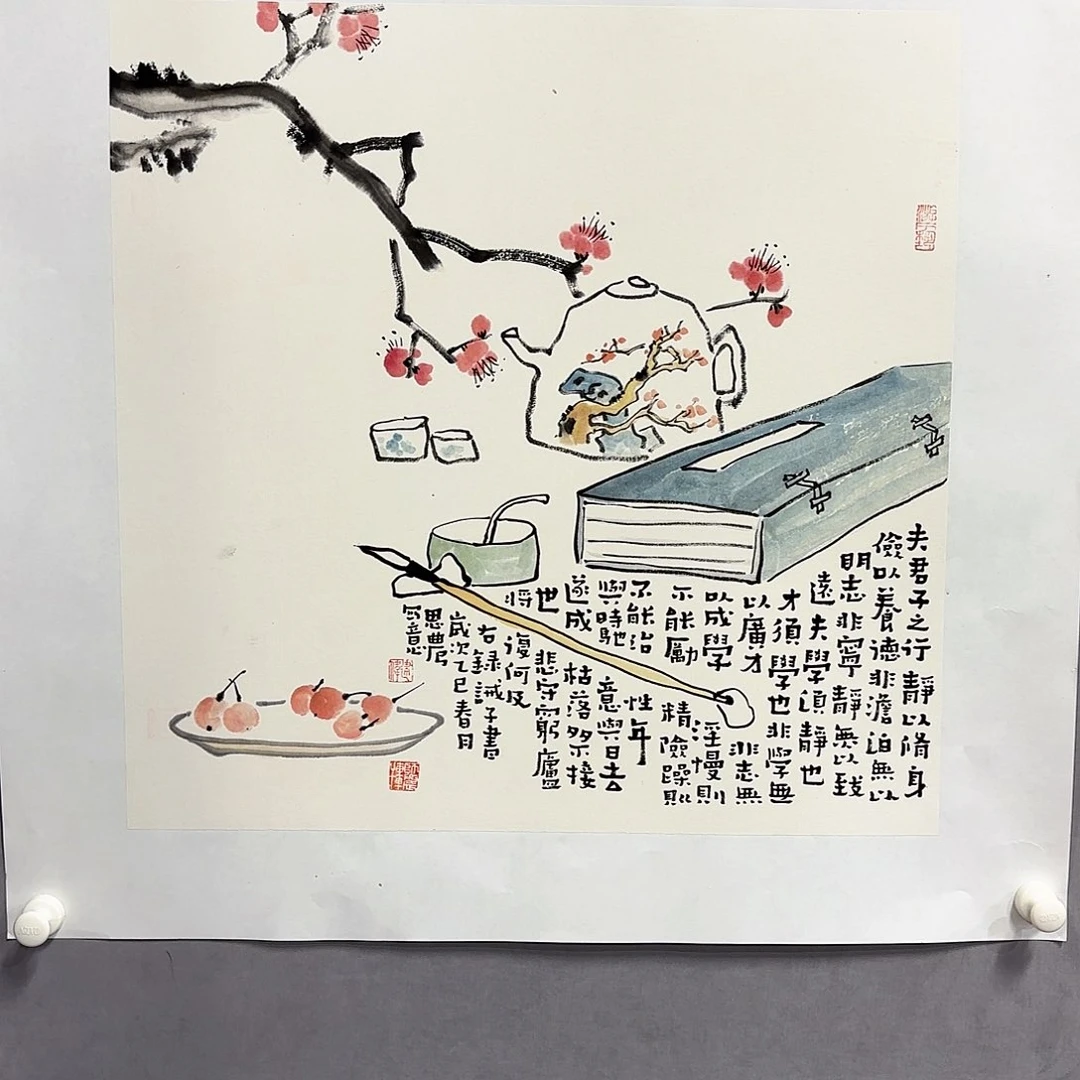 夫君子之行靜以脩身
儉以養德非澹泊無以
明志非寧靜無以致
遠夫學須靜也
才須學也非學無
以廣才非志無
以成學淫慢則
不能勵精險躁則
不能治性年
與時馳意與日去
遂成枯落多不接
世悲守窮廬
將復何及
右録誡子書
歲次乙巳春月
思農
寫意